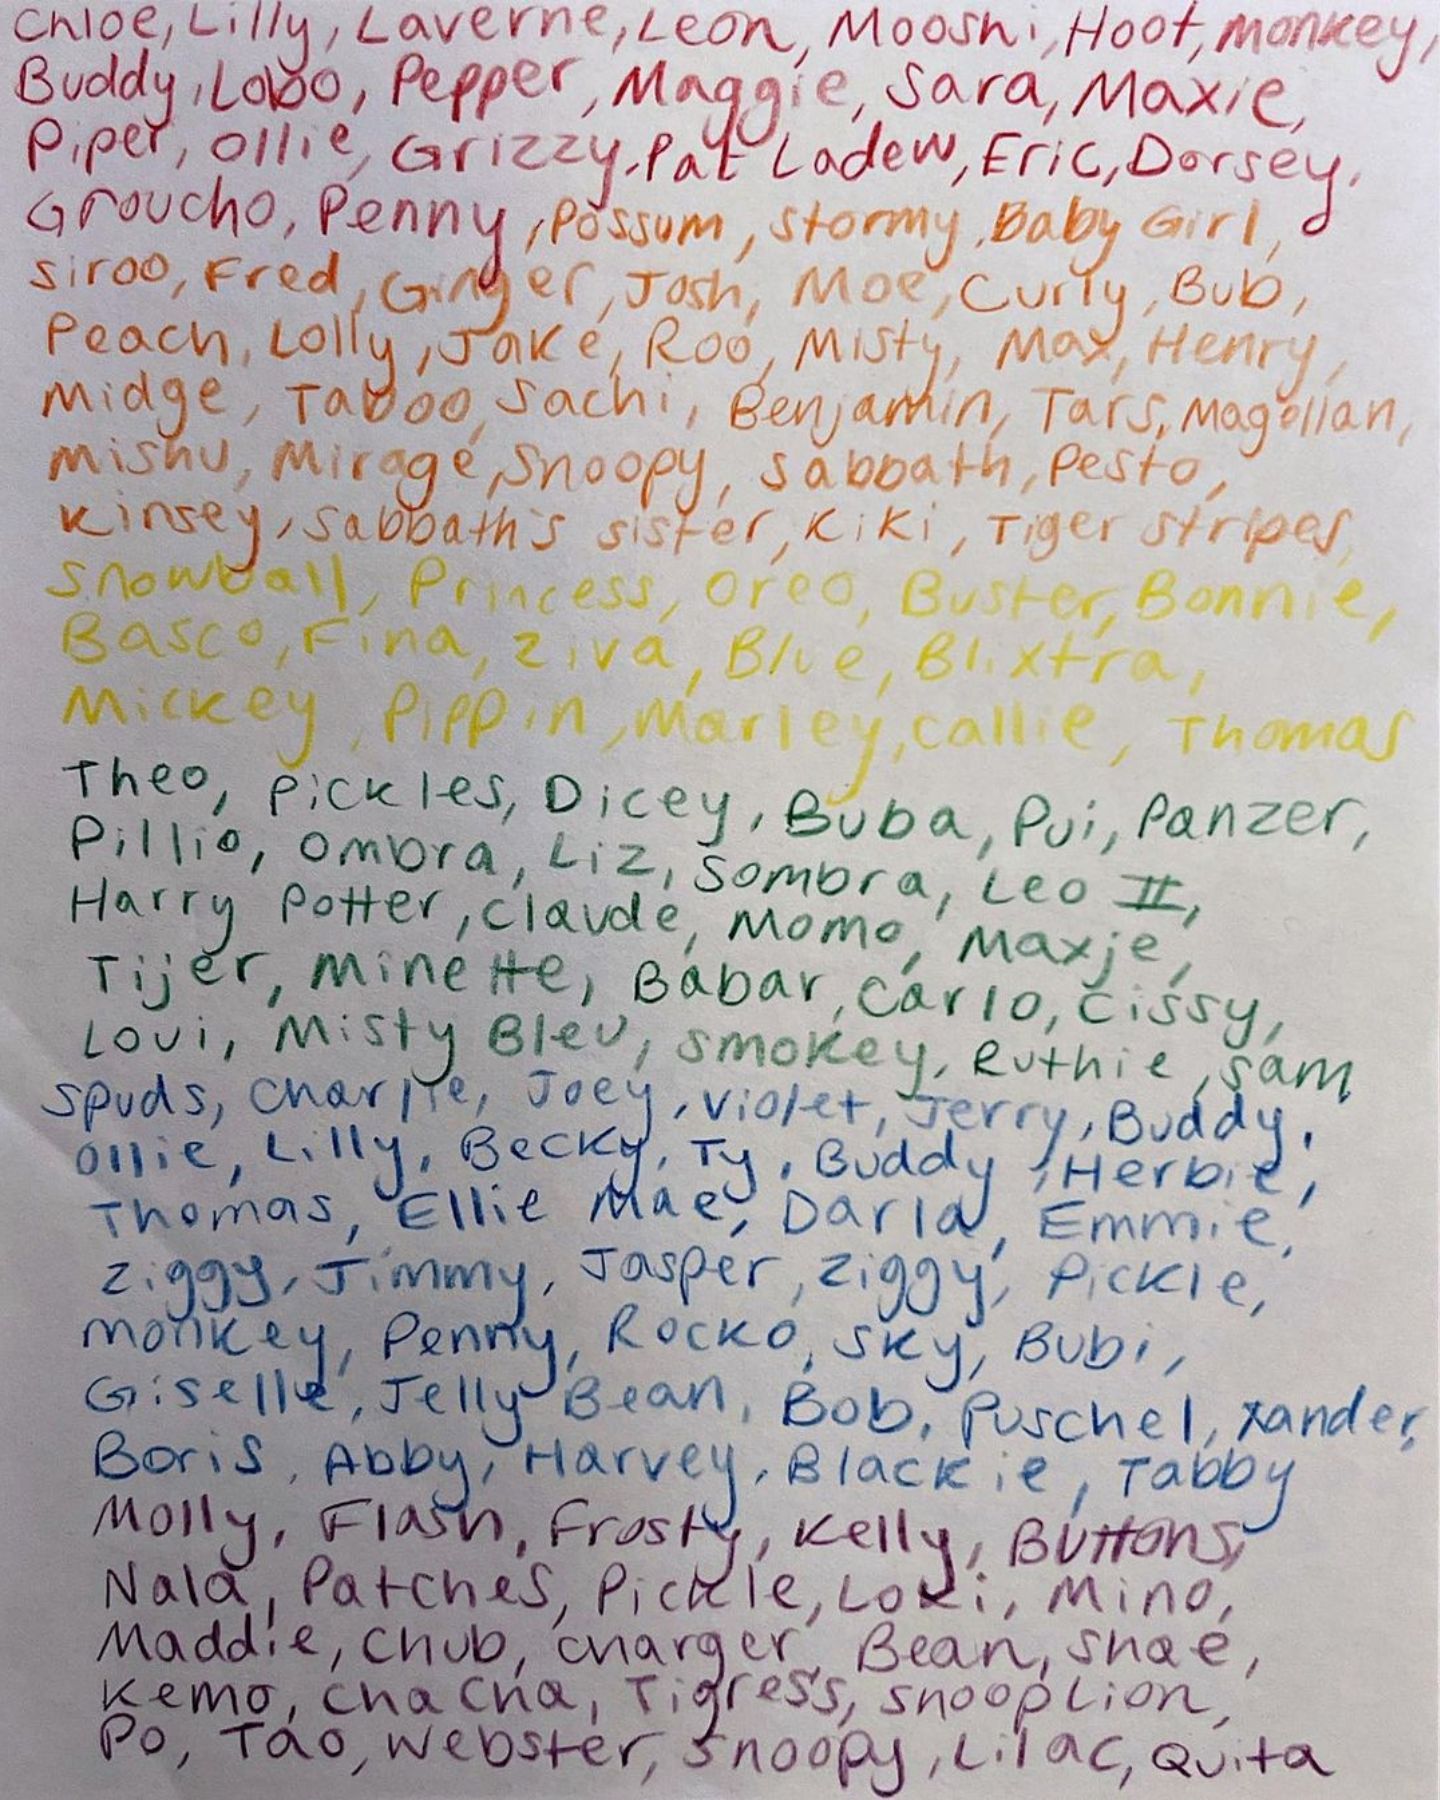 Chloe, Lilly, Laverne, Leon, Mooshi, Hoot, monkey,
Buddy, Lobo, Pepper, Maggie, Sara, Maxie,
Piper, Ollie, Grizzy, Pat Ladew, Eric, Dorsey,
Groucho, Penny, Possum, Stormy, Baby Girl,
Siroo, Fred, Ginger, Josh, Moe, Curly, Bub,
Peach, Lolly, Jake, Roo, Misty, Max, Henry,
Midge, Taboo, Sachi, Benjamin, Tars, Magellan,
Mishu, Mirage, Snoopy, Sabbath, Pesto,
Kinsey, Sabbath's sister, Kiki, Tiger Stripes,
Snowball, Princess, Oreo, Buster, Bonnie,
Basco, Fina, Ziva, Blue, Blixtra,
Mickey, Pippin, Marley, Callie, Thomas
Theo, Pickles, Dicey, Buba, Pui, Panzer,
Pillio, Ombra, Liz, Sombra, Leo II,
Harry Potter, Claude, Momo, Maxje,
Tijer, Minette, Babar, Carlo, Cissy,
Loui, Misty Bleu, Smokey, Ruthie, Sam
Spuds, Charlie, Joey, Violet, Jerry, Buddy,
Ollie, Lilly, Becky, Ty, Buddy, Herbie,
Thomas, Ellie Mae, Darla, Emmie,
Ziggy, Jimmy, Jasper, Ziggy, Pickle,
Monkey, Penny, Rocko, Sky, Bubi,
Giselle, Jelly Bean, Bob, Puschel, Xander,
Boris, Abby, Harvey, Blackie, Tabby
Molly, Flash, Frosty, Kelly, Buttons,
Nala, Patches, Pickle, Loki, Mino,
Maddie, Chub, Charger, Bean, Shae,
Kemo, Cha Cha, Tigress, Snoop Lion,
Po, Tao, Webster, Snoopy, Lilac, Quita